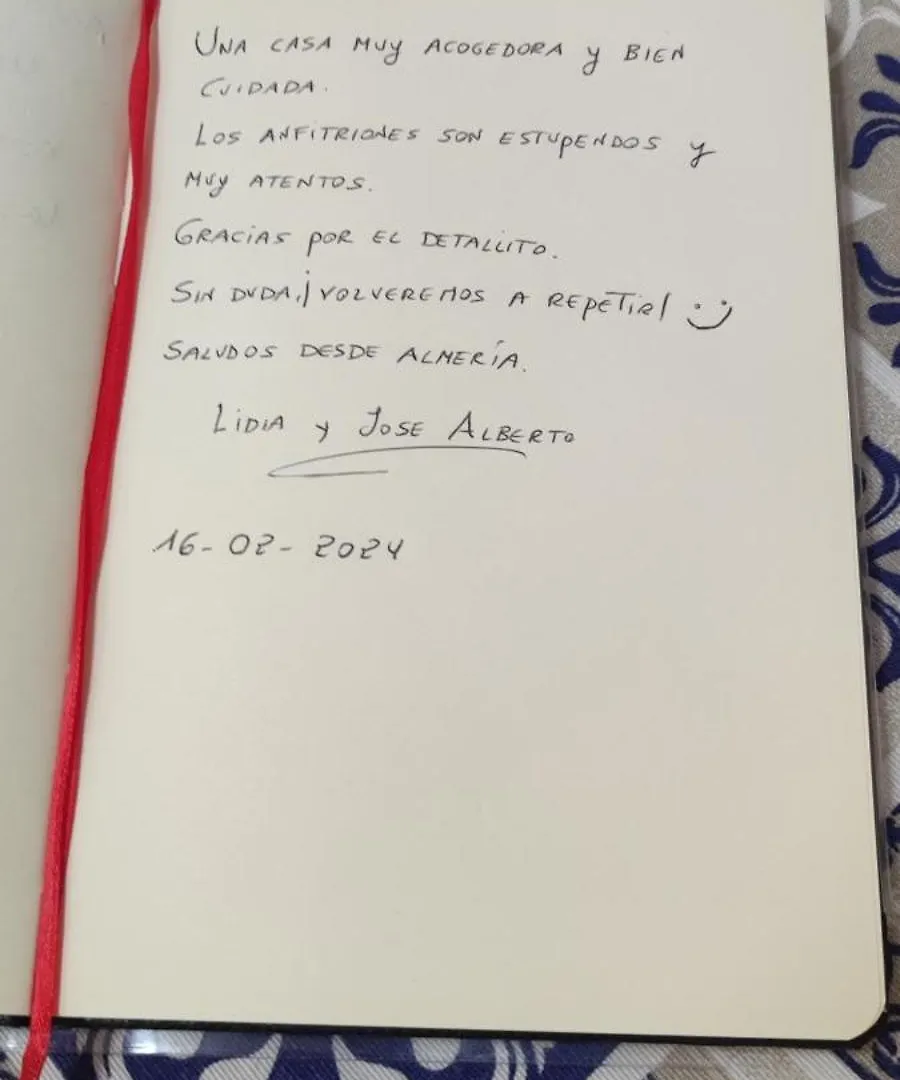 UNA CASA MUY ACOGEDORA Y BIEN
CUIDADA.
LOS ANFITRIONES SON ESTUPENDOS Y
MUY ATENTOS.
GRACIAS POR EL DETALLITO.
SIN DUDA, ¡VOLVEREMOS A REPETIR! :)
SALUDOS DESDE ALMERÍA.
LIDIA Y JOSE ALBERTO
16-02-2024